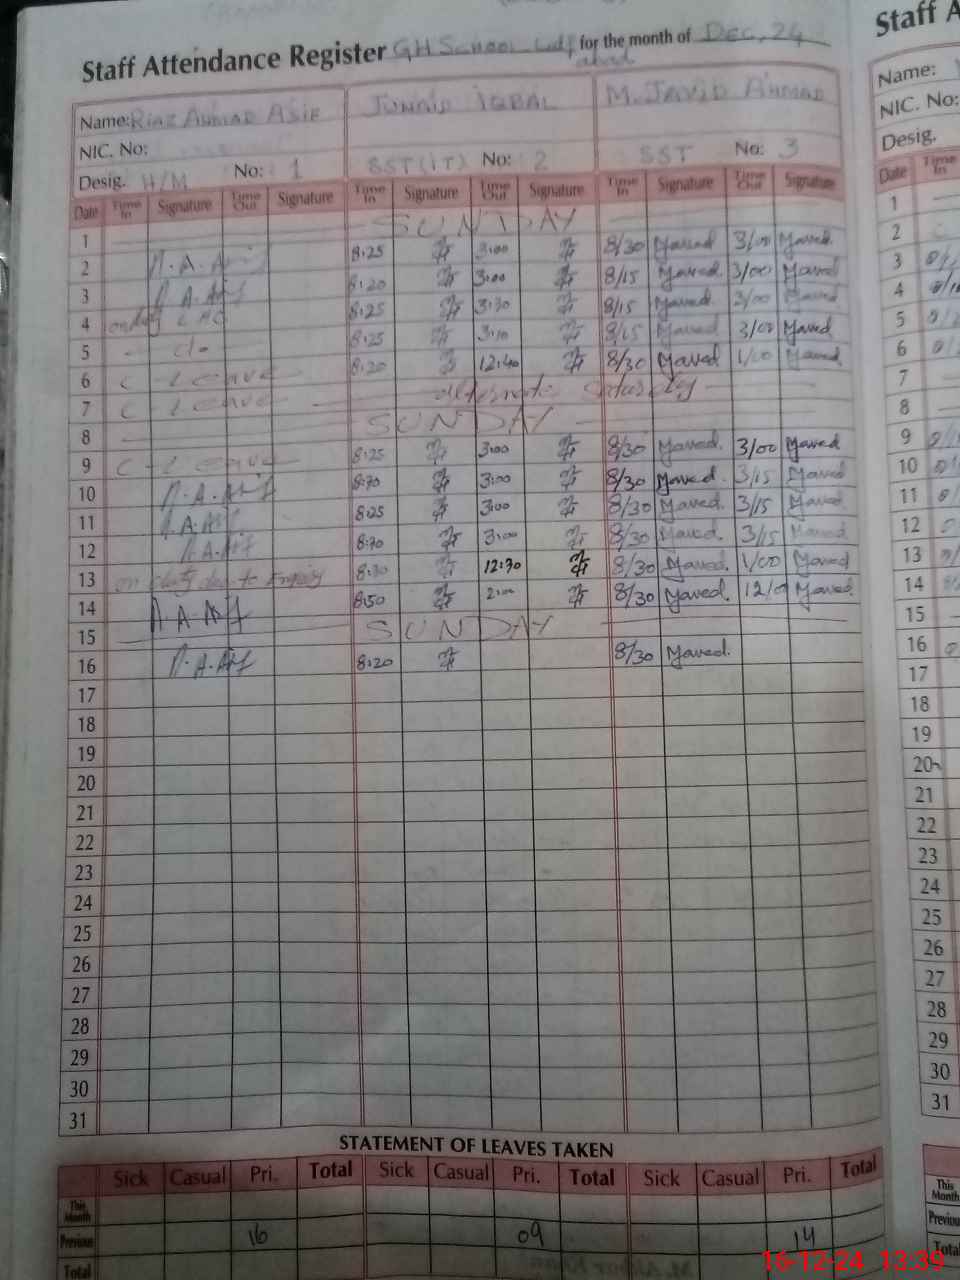 Staff Attendance Register GH School for the month of Dec, 24
Staff A
Name: Riaz Ahmad Asif Junaid Iqbal M. Javid Ahmad
Name:
NIC. No:
NIC. No:
Desig. H/M No: 1 SST(IT) No: 2 SST No: 3
Desig.
Date Time In Signature Time Out Signature Time In Signature Time Out Signature Time In Signature Time Out Signature
Date Time In
1 SUNDAY
2 8:25 3:00 8/30 Javed 3/00 Javed
3 8:20 3:00 8/15 Javed 3/00 Javed
4 8:25 3:30 8/15 Javed 3/00 Javed
5 do 8:25 8/15 Javed 3/00 Javed
6 C-Leave 8:20 12:40 8/30 Javed 1/00 Javed
7 C-Leave alternate Saturday
8 SUNDAY
9 C-Leave 8:25 3:00 8/30 Javed. 3/00 Javed
10 3:00 8/30 Javed. 3/15 Javed
11 8:25 3:00 8/30 Javed. 3/15 Javed
12 8:30 3:00 8/30 Javed. 3/15 Javed
13 on duty due to Enquiry 8:30 12:30 8/30 Javed. 1/00 Javed
14 8:50 2:00 8/30 Javed. Javed.
15 SUNDAY
16 8:20 8/30 Javed.
17
18
19
20
21
22
23
24
25
26
27
28
29
30
31
1
2
3
4
5
6
7
8
9
10
11
12
13
14
15
16
17
18
19
20
21
22
23
24
25
26
27
28
29
30
31
STATEMENT OF LEAVES TAKEN
Sick Casual Pri. Total Sick Casual Pri. Total Sick Casual Pri. Total
This Month
This Month
Previous 16 09 14
Previous
Total
Total
16-12-24 13:39